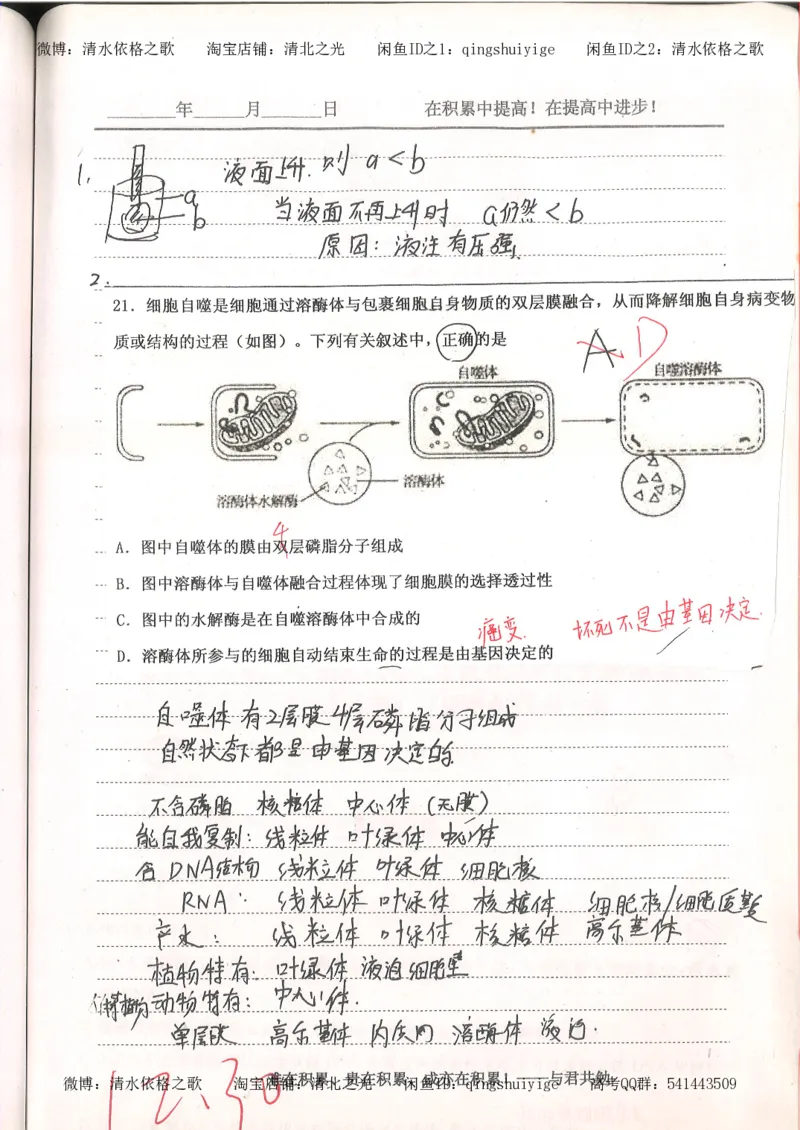 微博：清水依格之歌 淘宝店铺：清北之光 闲鱼ID之1：qingshuiyige 闲鱼ID之2：清水依格之歌
年 月 日 在积累中提高！在提高中进步！
1. 液面上升. 则 a<b
a
b
当液面不再上升时 a仍然<b
原因：液注有压强.
2.
21．细胞自噬是细胞通过溶酶体与包裹细胞自身物质的双层膜融合，从而降解细胞自身病变物
质或结构的过程（如图）。下列有关叙述中，正确的是
A D
自噬体 自噬溶酶体
溶酶体
溶酶体水解酶
4
A．图中自噬体的膜由双层磷脂分子组成
B．图中溶酶体与自噬体融合过程体现了细胞膜的选择透过性
C．图中的水解酶是在自噬溶酶体中合成的
癌变. 坏死不是由基因决定.
D．溶酶体所参与的细胞自动结束生命的过程是由基因决定的
自噬体有2层膜4层磷脂分子组成
自然状态下都是由基因决定的.
不含磷脂 核糖体 中心体 (无膜)
能自我复制：线粒体 叶绿体 中心体
含DNA结构 线粒体 叶绿体 细胞核
RNA： 线粒体 叶绿体 核糖体 细胞核/细胞质基质
产水： 线粒体 叶绿体 核糖体 高尔基体
植物特有：叶绿体 液泡 细胞壁
动物特有：中心体.
单层膜 高尔基体 内质网 溶酶体 液泡.
难在积累，贵在积累，成亦在积累！——与君共勉
微博：清水依格之歌 淘宝店铺：清北之光 闲鱼ID：qingshuiyige 高考QQ群：541443509
12.30